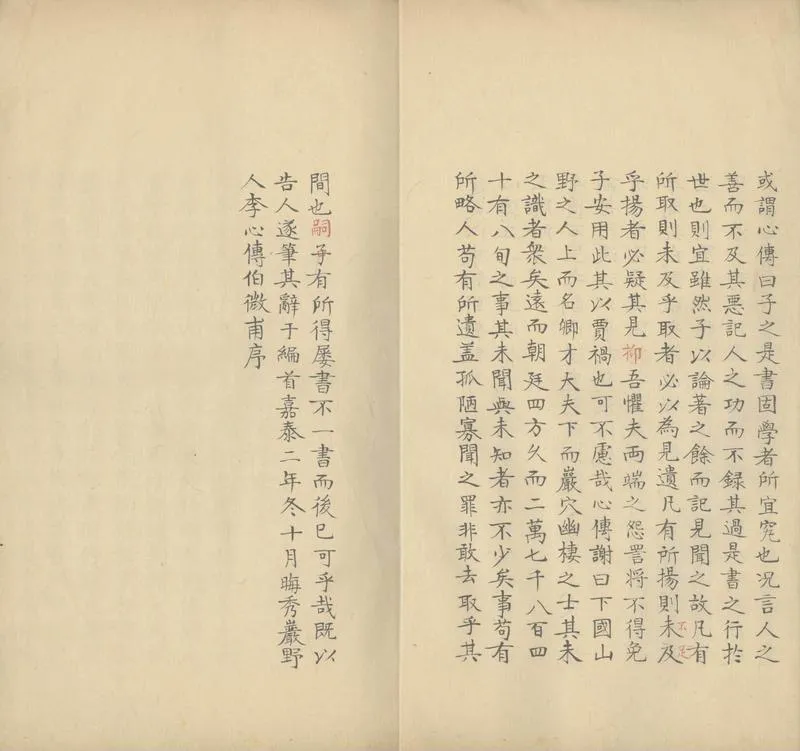 或謂心傳曰子之是書固學者所宜究也况言人之
善而不及其惡記人之功而不録其過是書之行於
世也則宜雖然子以論著之餘而記見聞之故凡有
所取則未及乎取者必以為見遺凡有所揚則未及
乎揚者必疑其見抑吾懼夫兩端之怨詈將不得免
子安用此其以賈禍也可不慮哉心傳謝曰下國山
野之人上而名卿才大夫下而巖穴幽棲之士其未
之識者衆矣遠而朝廷四方久而二萬七千八百四
十有八旬之事其未聞與未知者亦不少矣事苟有
所略人苟有所遺盖孤陋寡聞之罪非敢去取乎其
間也嗣予有所得屢書不一書而後已可乎哉既以
告人遂筆其辭于編首嘉泰二年冬十月晦秀巖野
人李心傳伯微甫序